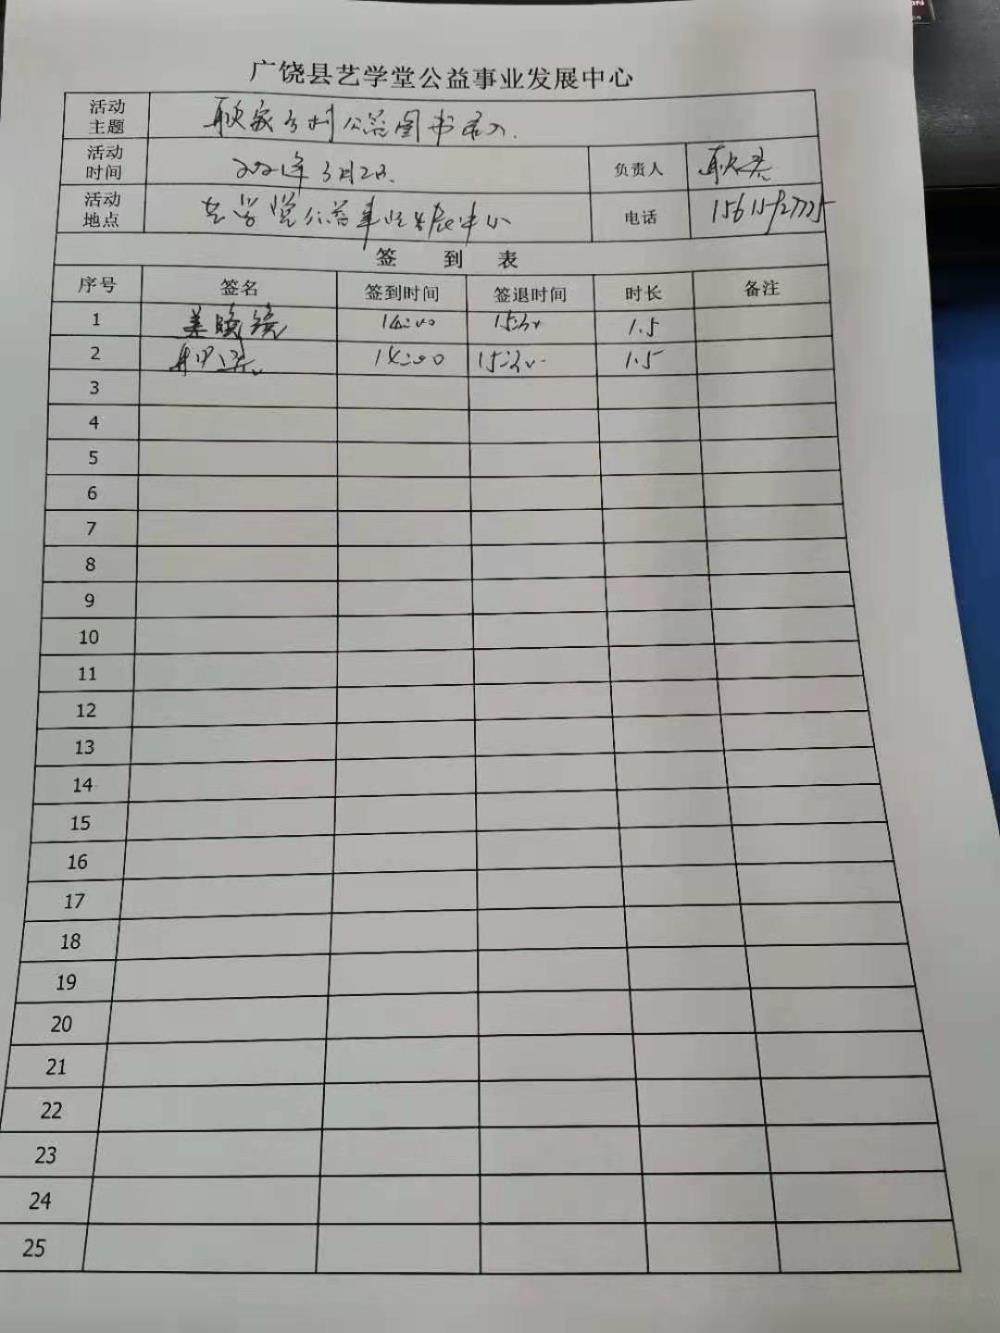 广饶县艺学堂公益事业发展中心
活动主题 耿家 公益图书录入.
活动时间 2021年3月2日. 负责人 耿
活动地点 艺学堂公益事业发展中心 电话
签 到 表
序号 签名 签到时间 签退时间 时长 备注
1 姜晓 14:00 15:30 1.5
2 14:00 15:30 1.5
3
4
5
6
7
8
9
10
11
12
13
14
15
16
17
18
19
20
21
22
23
24
25